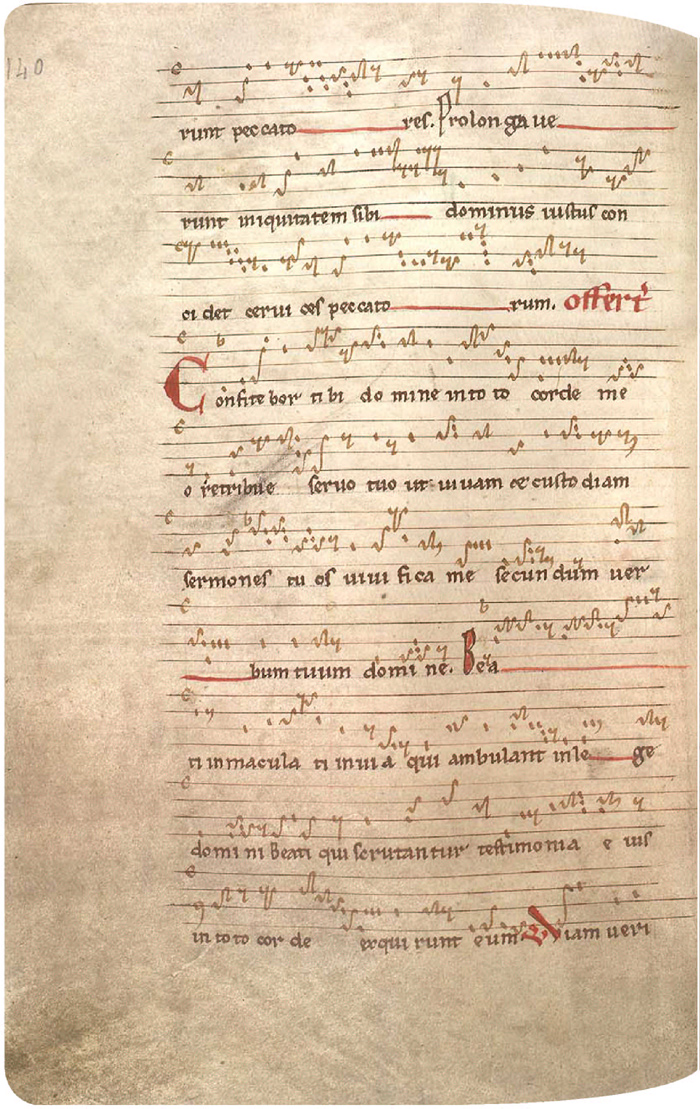 140
runt peccato res. Prolonga ue
runt iniquitatem sibi dominus iustus con
ci det cerui ces peccato rum. offert
Confite bor ti bi do mine in to to corde me
o retribue seruo tuo ut uiuam et custo diam
sermones tu os uiui fica me secun dum uer
bum tuum domi ne. Bea
ti inmacula ti in ui a qui ambulant in le ge
domi ni Beati qui scrutantur testimonia e ius
in toto cor de exqui runt eum Viam ueri